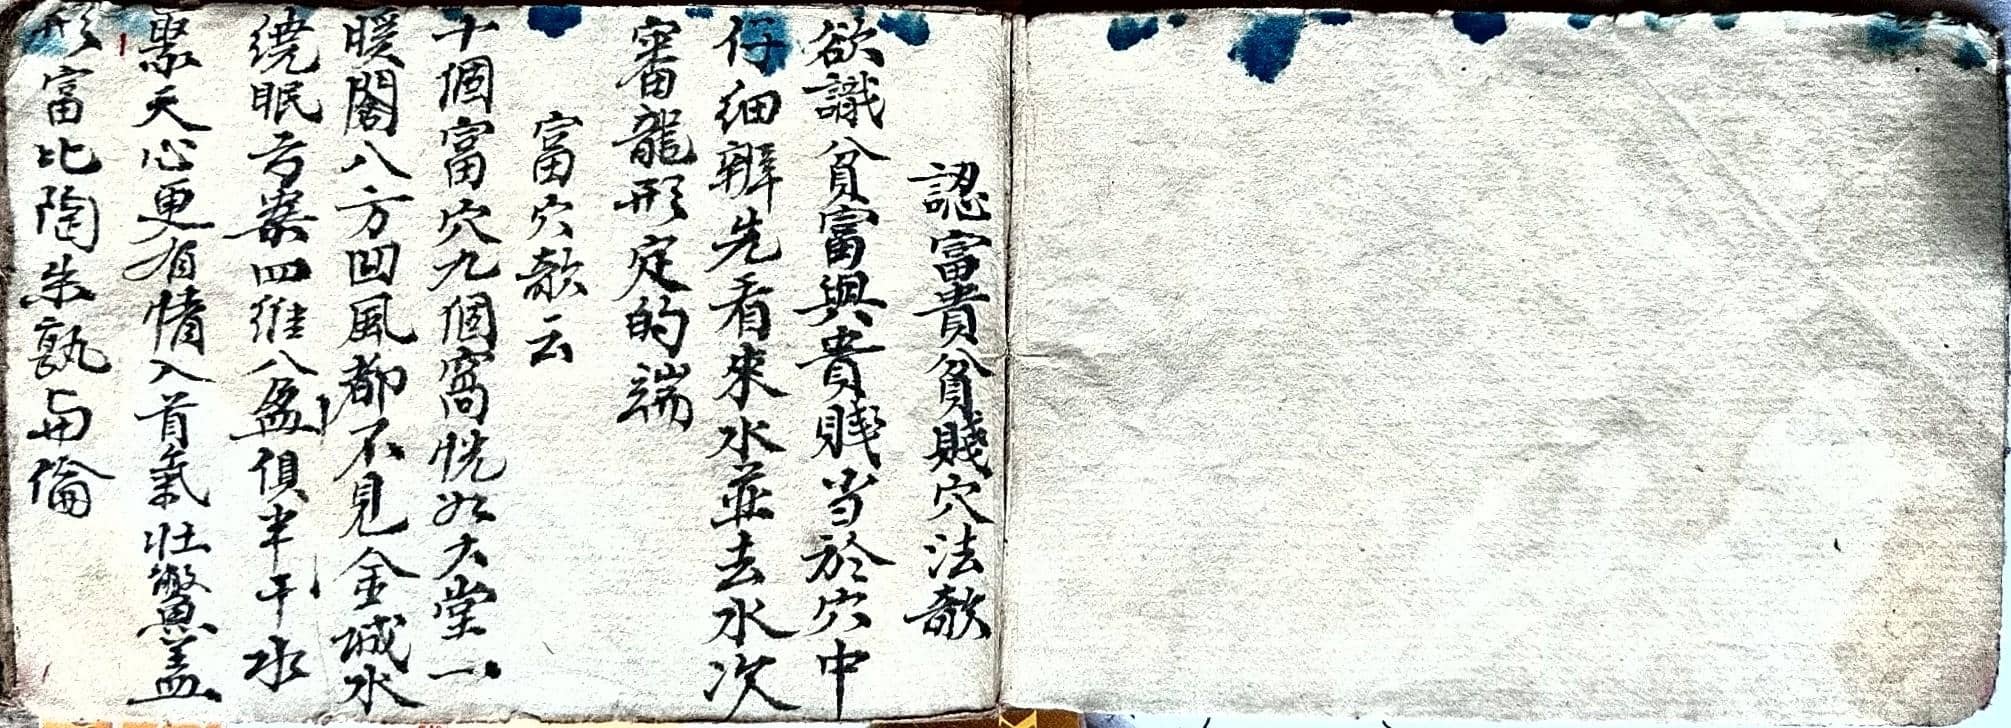 認富貴貧賤穴法歌
欲識貧富與貴賤当於穴中
仔細辨先看來水並去水次
審龍形定的端
富穴歌云
十個富穴九個窩恍如大堂一
暖閣八方凹風都不見金城水
繞眠弓案四維八盈俱丰干水
聚天心更有情入首氣壯鱉盖
形富比陶朱孰与倫